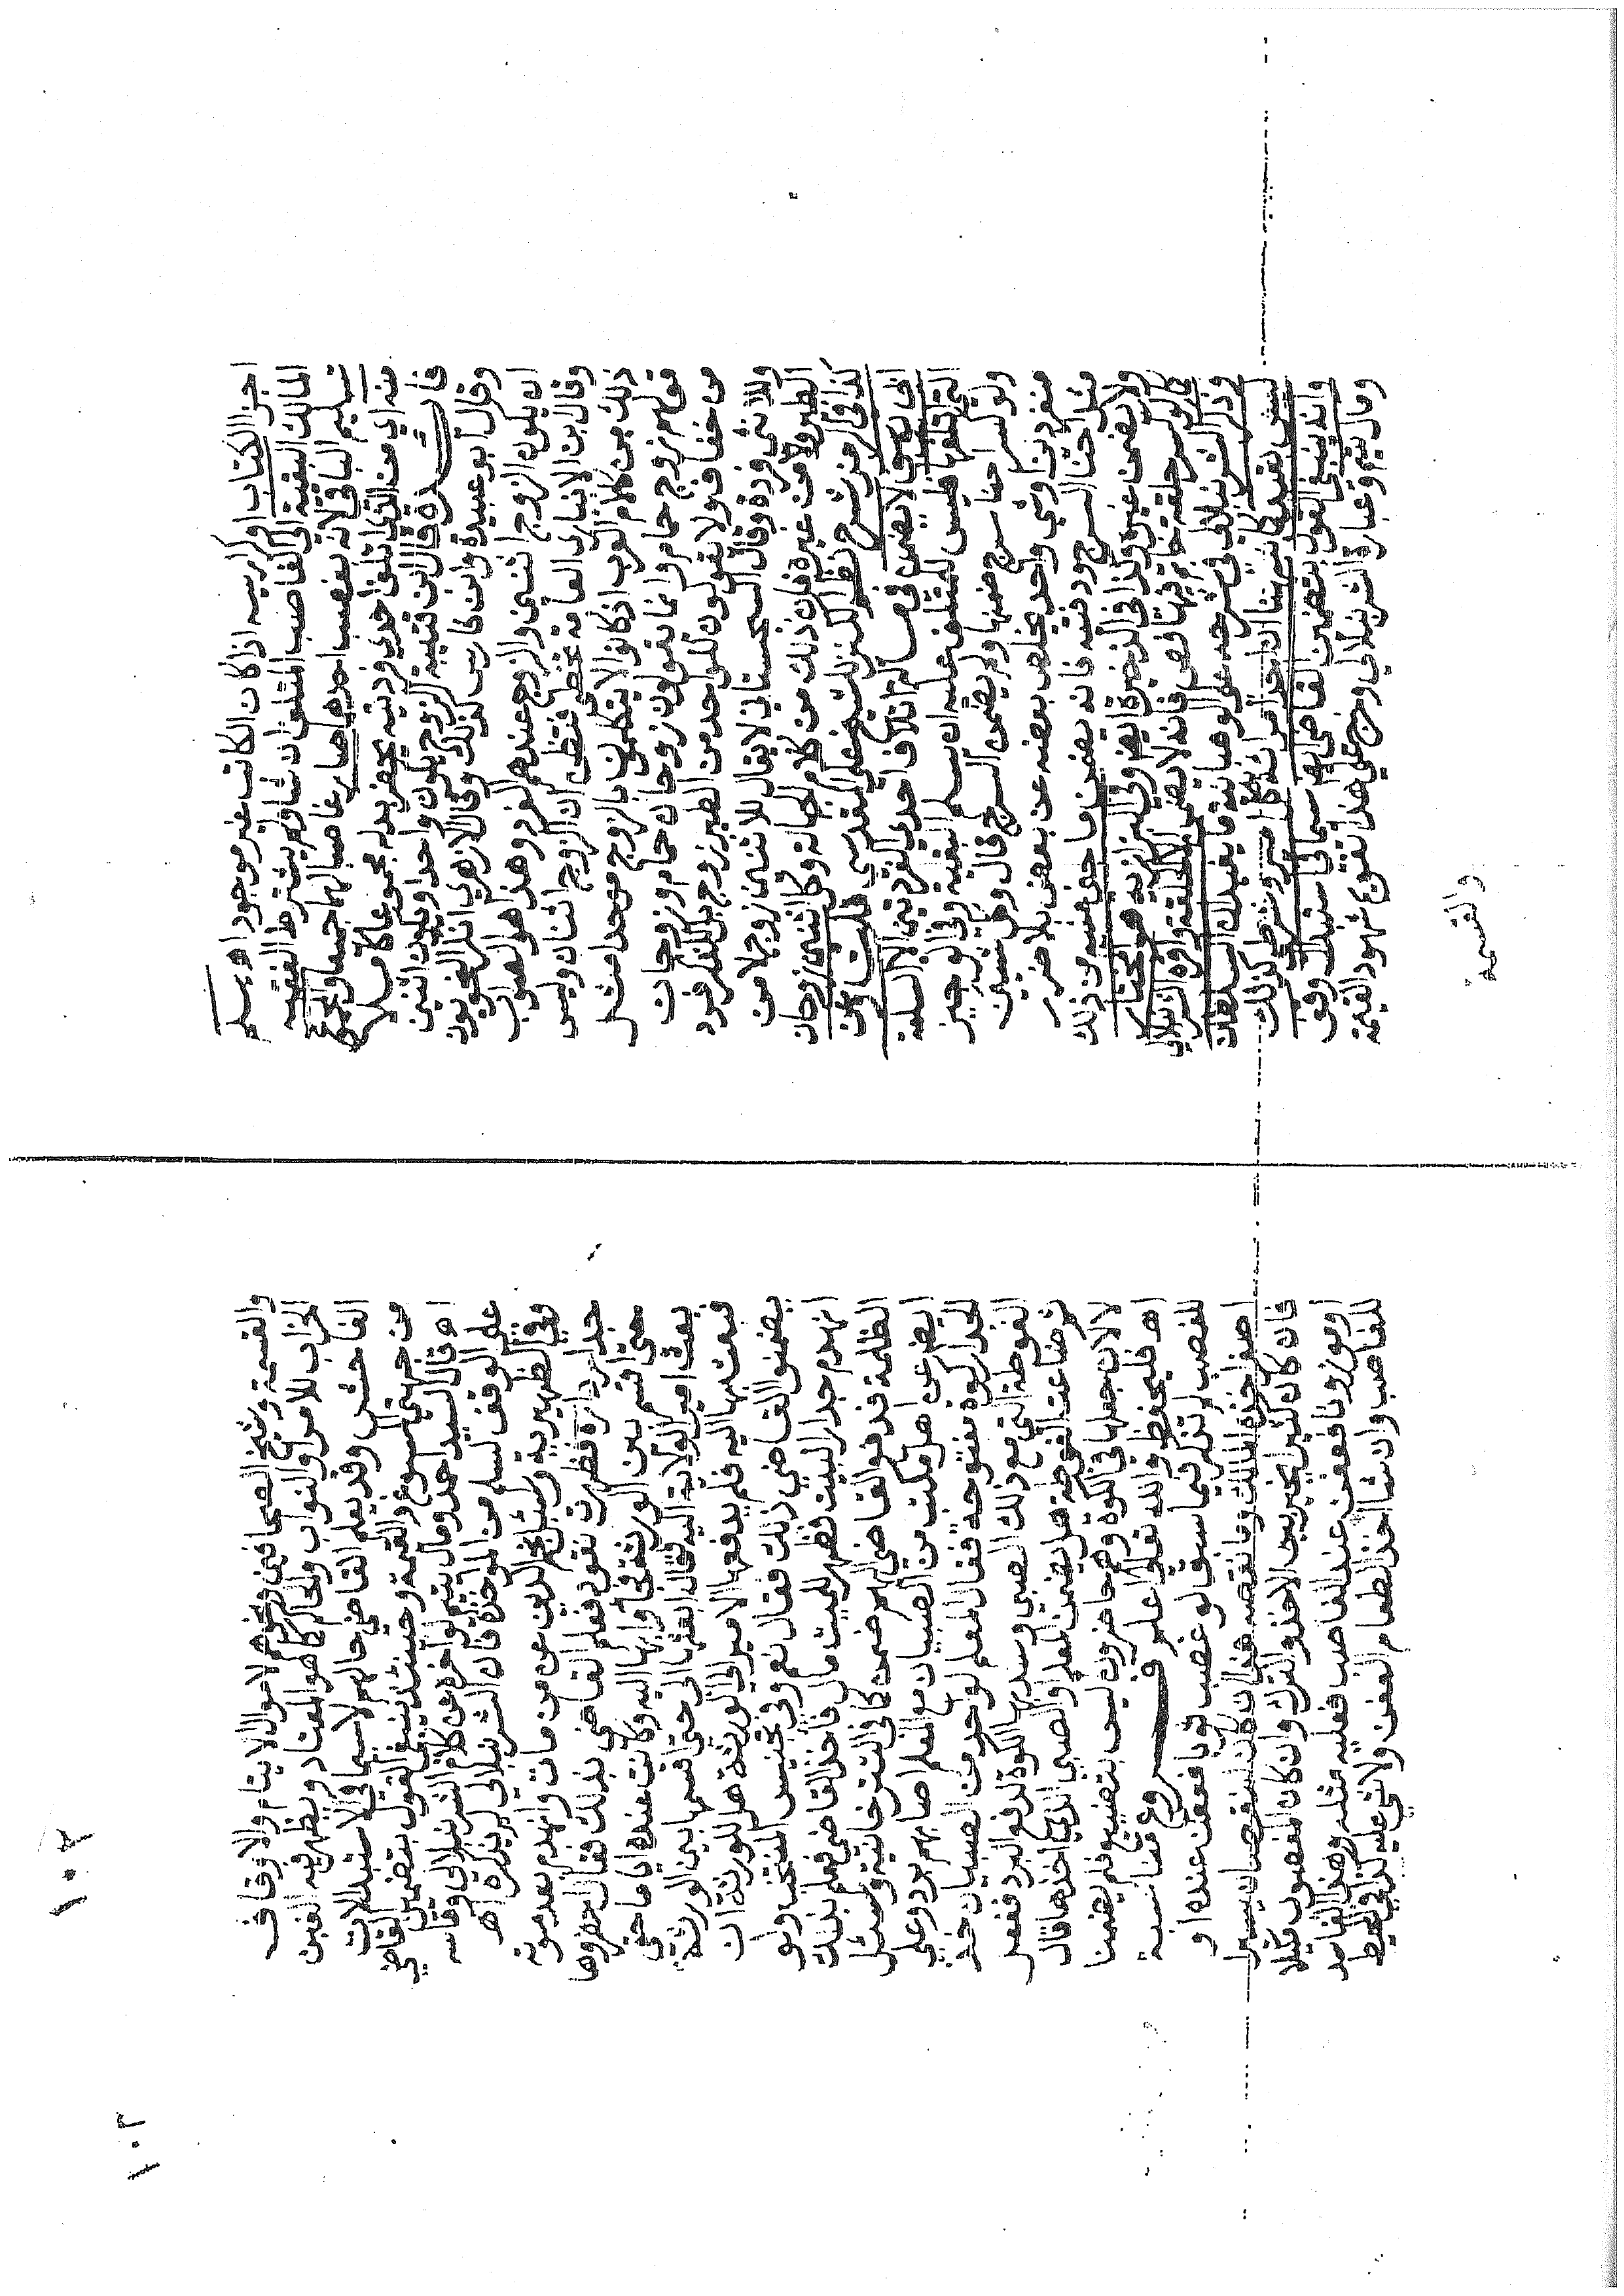 اجزا الكتاب او كراريسه اذا كان الكاتب غير موجود او يسلم
المالك البقية الى الغاصب المتلف ان شا ولم يشترط الفقيه
تسليم الباقي لانه بغصب احدهما صار غاصبا لهما جميعا والجمع
منه اي من الذي اتلف احدى فردتيه يحضر بدله مجموعا كاملا
فائدة قال ابن قتيبة الزوج يكون واحدا ويكون اثنين
وقال ابو عبيدة وابن فارس كذلك وقال الازهري انكر النحويون
ان يكون الزوج اثنين والزوج عندهم الفرد وهذا هو الصواب
وقال ابن الانباري العامة تخطئ فتظن ان الزوج اثنان وليس
ذلك من كلام العرب اذ كانوا لا يتكلمون بالزوج موحدا في مثل
قولهم زوج حمام وانما يقولون زوجان حمام وزوجان
من خفاف ولا يقولون للواحد من الطير زوج بل للذكر فرد
وللانثى فردة وقال السجستاني لا يقال للاثنين زوج لا من
الطير ولا من غيره فان ذلك من كلام الجهال وكل اثنين زوجان
كذا في رمز شرح نظم الكنز للشيخ علي المقدسي قلت وعن
ابي يوسف لا يضمن في مسالة اتلاف احدى الفردتين الا السالمة
التي اتلفها فليس للمتلف عليه ان يسلم البقية وفي الوجيز
ولو كسر احنا سرج ضمنها ولم يضمن السرج قال وكل شيئين
منفردين او شي واحد يخلص بعضه عن بعض بلا ضرر
مثل احنا السرج ودفتيه فانه يضمن ما جنى فيه من ذلك
ولا يضمن غيره وكذا في الذخيرة ايضا وفي البزازية هو المختار
ولو كسر حلقة خاتم فيها فص فانه لا يضمن الا الحلقة واقره الشرنبلالي
وذكر الشرنبلالي في شرحه على الوهبانية ما يفيد ان السلطان
ليس بقيد كل كذلك
وانه ينبغي القول بتضمين القاضي لا سيما في استبدال وقف
ومال يتيم وعبارة الشرنبلالي وخرج على هذا تقويم شهود القيمة
والقسمة

والقسمة وشيخ الصحافين ونحوهم لاموال الايتام والاوقاف
الخراب للامرا والنواب والحاكم كما هو المعتاد ويظهر فيه الغبن
الفاحش وقد يعلم القاضي حالهم لا سيما في الاستبدالات
من جهتي المسوغ والقيمة وحينئذ ينبغي القول بتضمين القاضي
اه قال السيد احمد ومال يتيم لم اخره عن كلام الشرنبلالي وقاسه
على الوقف لسلم من المواخذة فان الشرنبلالي لم يذكره اه
وفي الظهيرية وسئل نجم الدين عن من مات وانهدم بعد موته
جدار داره فظهرت نقود فعلم القاضي بذلك فقال احضروها
حتى اقسم بين الورثة فجاوا بها اليه وكانت عنده اياما حتى
بعث امير الولاية اليه فقال ابعثها الي حتى اقسمها بين الورثة
فبعث بها اليه فلم يدفعها الامير الى الورثة هل للورثة ان
يضمنوا القاضي ذلك فقال نعم وفي تجنيس المنتخب ولو
انهدم جدار البيت فظهر للميت مال فاخذ القاضي فعلم بذلك
الظلمة فدفعه القاضي لهم ضمن كما في التترخانية ومسئل
ايضا عن اهل مكتب من الصبيان مع المعلم اصابهم برد وعلى
الجدار كوة مفتوحة فقال المعلم لواحد من الصبيان خذ
الفوطة التي مع ذلك الصبي وسد بها الكوة لدفع البرد ففعل
ثم ضاعت الفوطة هل يضمن المعلم او الصبي الذي اخذها قال
لا لان جعلها في الكوة وهم حاضرون ليس بتضييع فلم يضمنا
اه فليحفظ والله تعالى اعلم فروع مناسبة
للغصب لم تذكر فيما سبق لو غصب ثوبا فعفن عنده او
اصفر اخذه المالك وما نقصه هذا ان كان النقصان يسيرا
فان كان كثيرا يخير بين الاخذ والترك وان كان المغصوب مكيلا
او موزونا فعفن عند الغاصب فعليه مثله وهذا الفاسد
للغاصب وان شا اخذ الطعام العفن ولا شي عليه كذا في المحيط
١٠٢
١٠٢